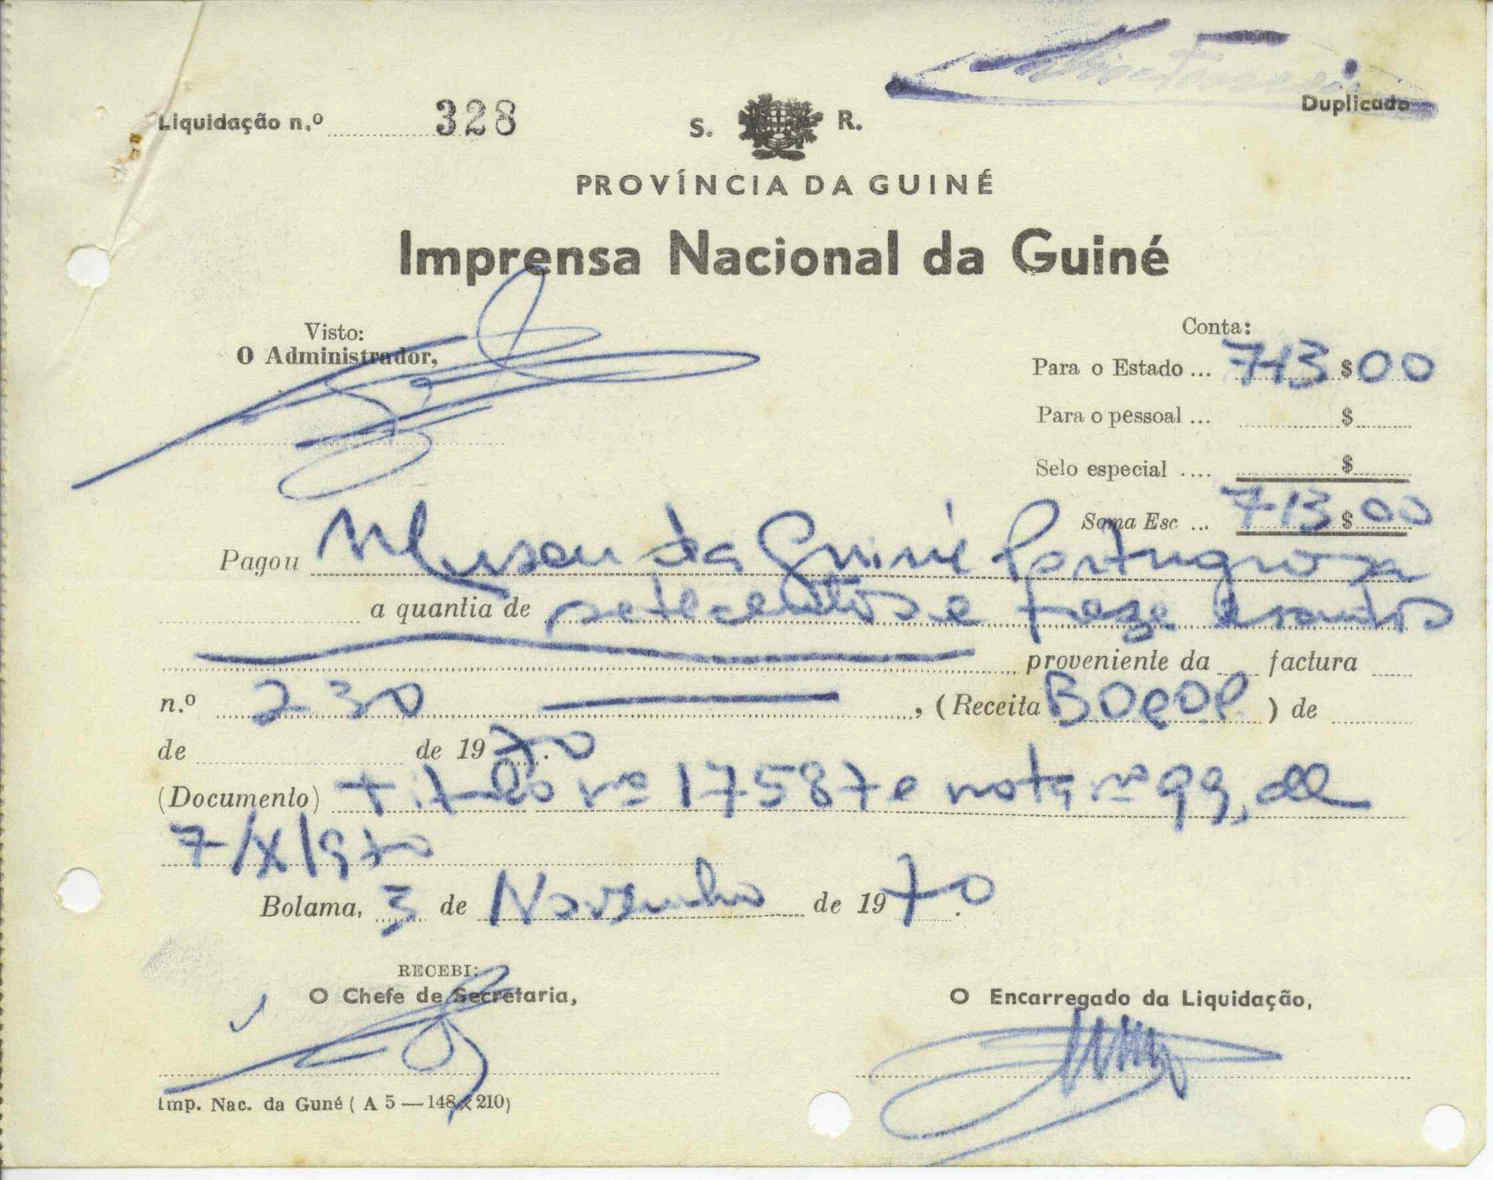 Liquidação n.º 328
S. R.
Duplicado
PROVÍNCIA DA GUINÉ
Imprensa Nacional da Guiné
Visto:
O Administrador,
Conta:
Para o Estado ... 713 $ 00
Para o pessoal ... $
Selo especial .... $
Soma Esc ... 713 $ 00
Pagou Museu da Guiné Portuguesa
a quantia de setecentos e treze escudos
proveniente da factura
n.º 230 , (Receita ) de
de de 1970.
(Documento) titulo nº 17587 e nota nº 99, de
7/X/970
Bolama, 3 de Novembro de 1970.
RECEBI:
O Chefe de Secretaria,
O Encarregado da Liquidação,
Imp. Nac. da Guné ( A 5 — 148 x 210)